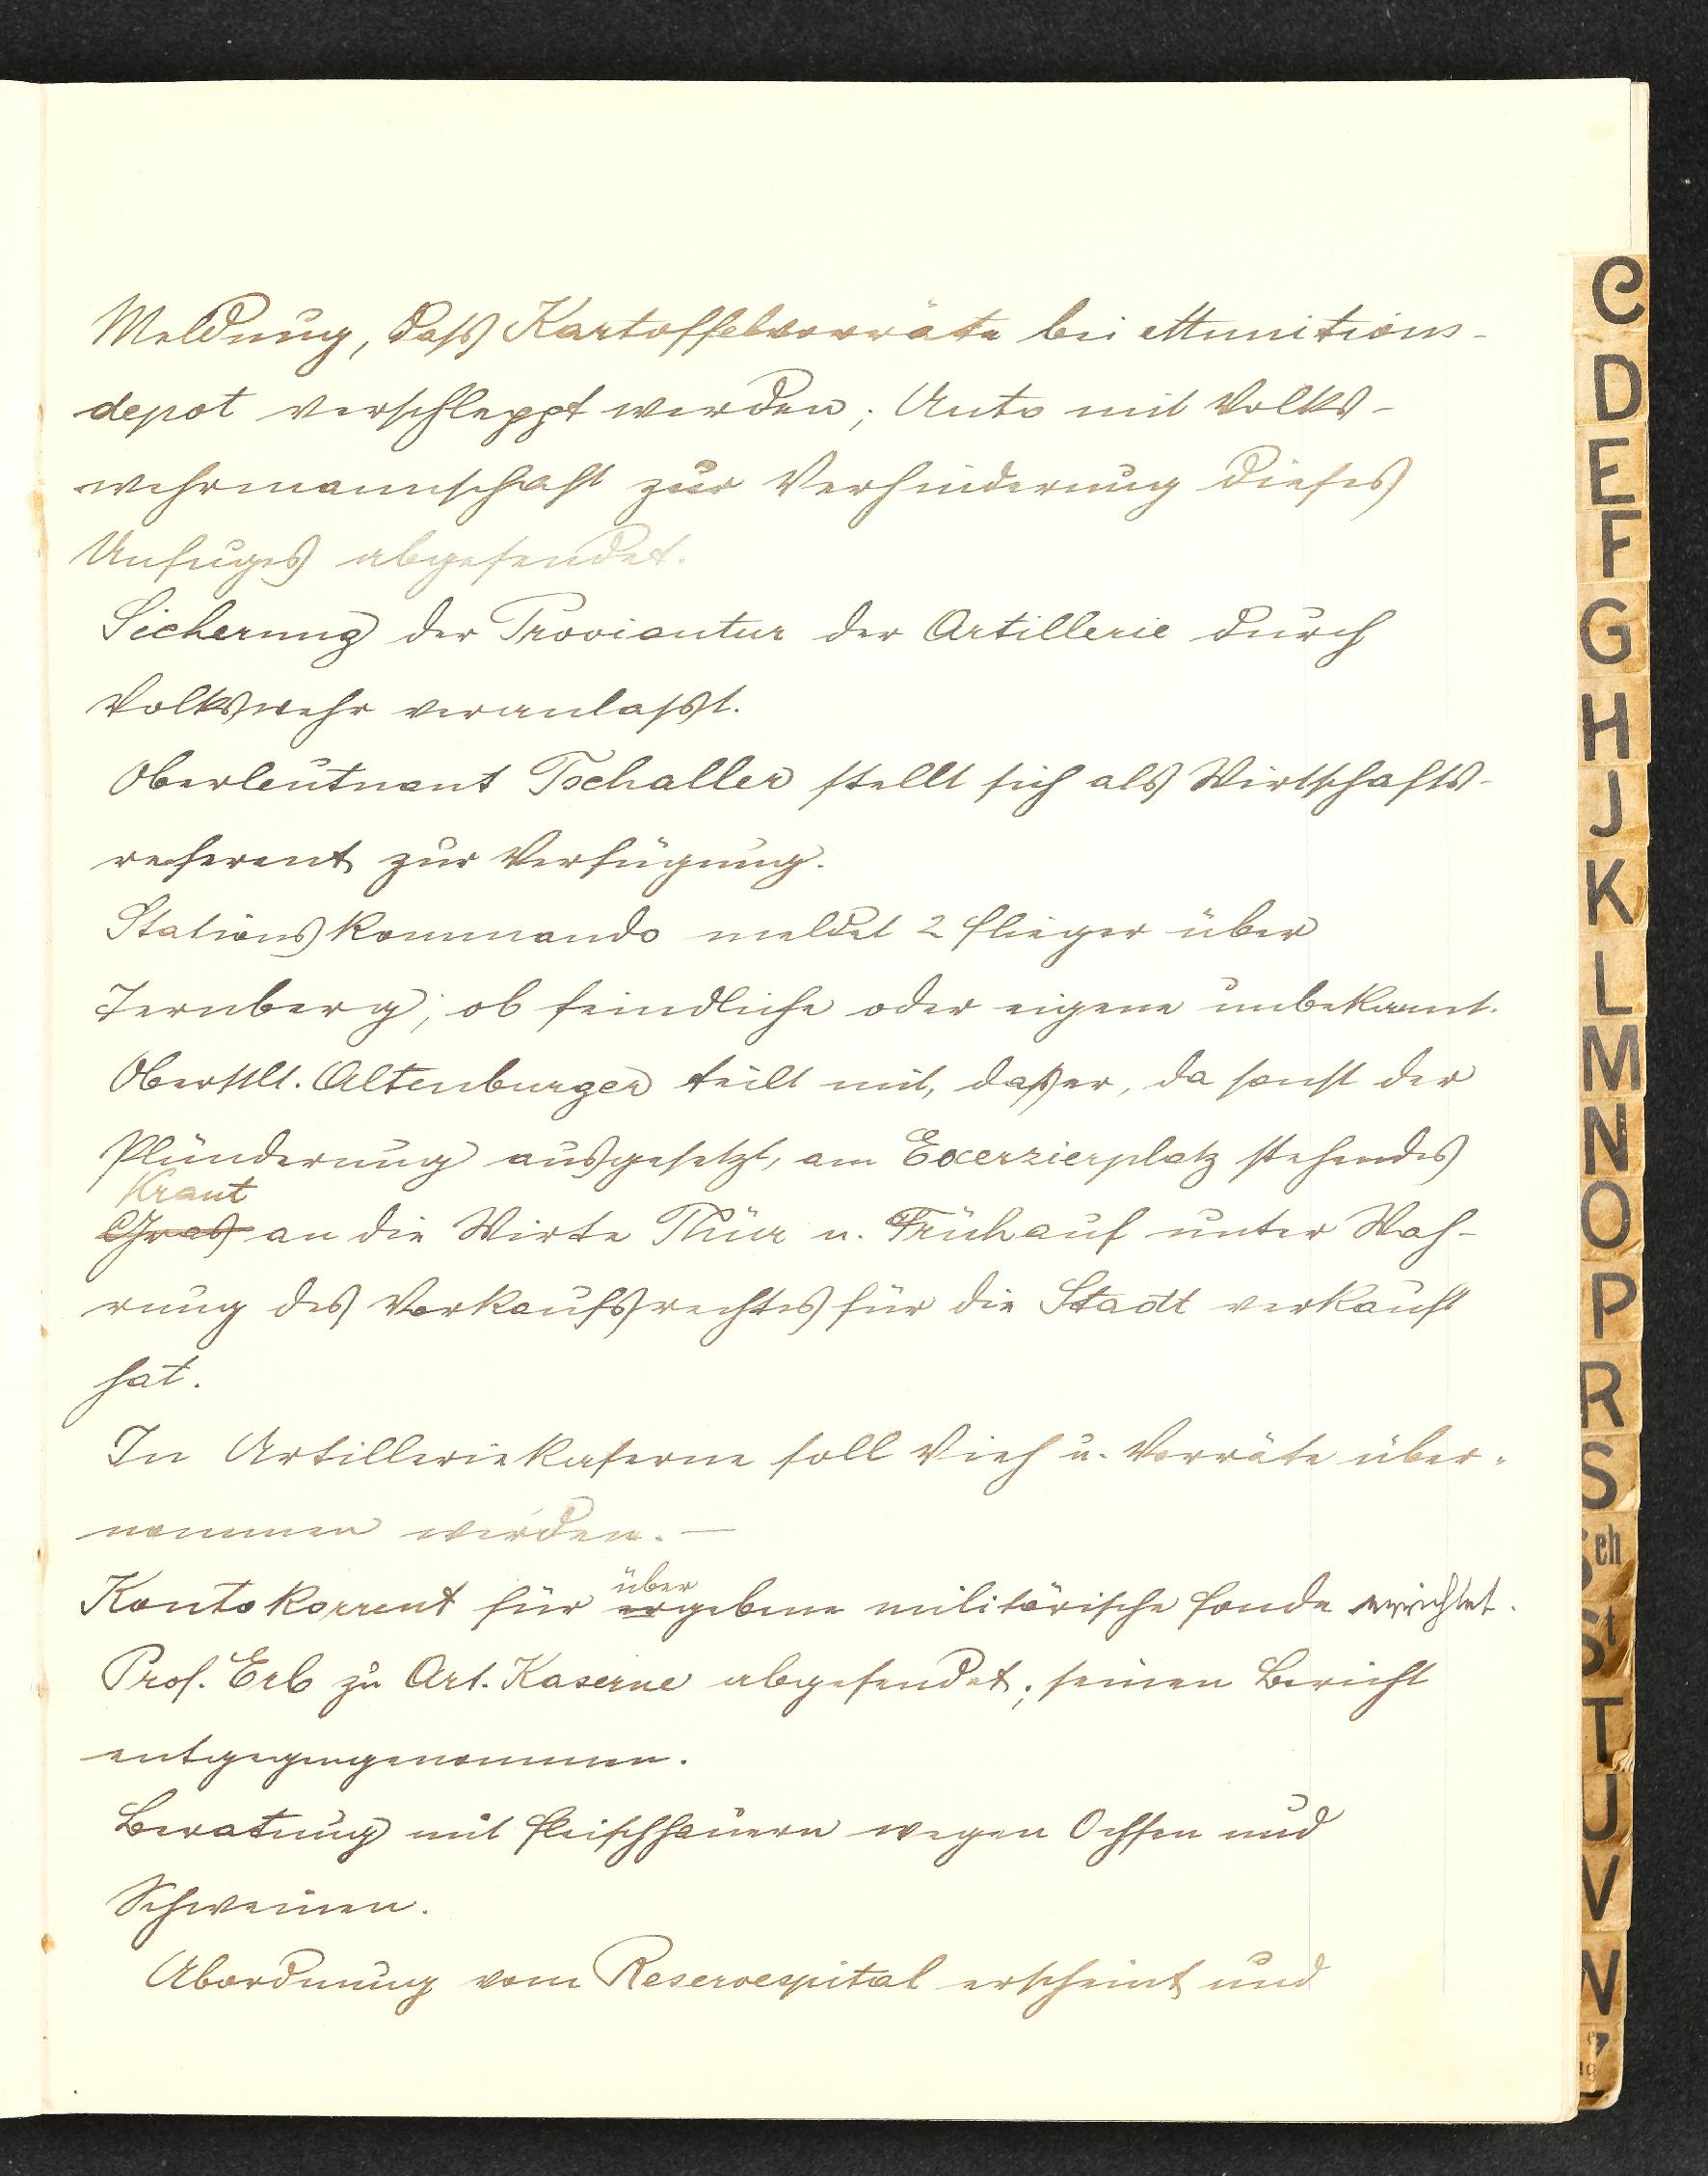 Meldung, daß Kartoffelvorräte bei Munitions-
depot verschleppt werden; Auto mit Volks-
wehrmannschaft zur Verhinderung dieses
Unfuges abgesendet.
Sicherung der Proviantur der Artillerie durch
Volkswehr veranlaßt.
Oberleutnant Tschaller stellt sich als Wirtschafts-
referent zur Verfügung.
Stationskommando meldet 2 Flieger über
Ternberg; ob feindliche oder eigene unbekannt.
Oberstlt. Altenburger teilt mit, daß er, da sonst der
Plünderung ausgesetzt, am Excerzierplatz stehendes
Kraut
Gras an die Wirte Thür u. Frühauf unter Wah-
rung des Vorkaufsrechtes für die Stadt verkauft
hat.
In Artilleriekaserne soll Vieh u. Vorräte über-
nommen werden. —
über
Kontokorrent für ergebene militärische Fonde errichtet.
Prof. Erb zu Art. Kaserne abgesendet; seinen Bericht
entgegengenommen.
Beratung mit Fleischhauern wegen Ochsen und
Schweinen.
Abordnung vom Reservespital erscheint und
C
D
E
F
G
H
J
K
L
M
N
O
P
R
S
Sch
St
T
U
V
W